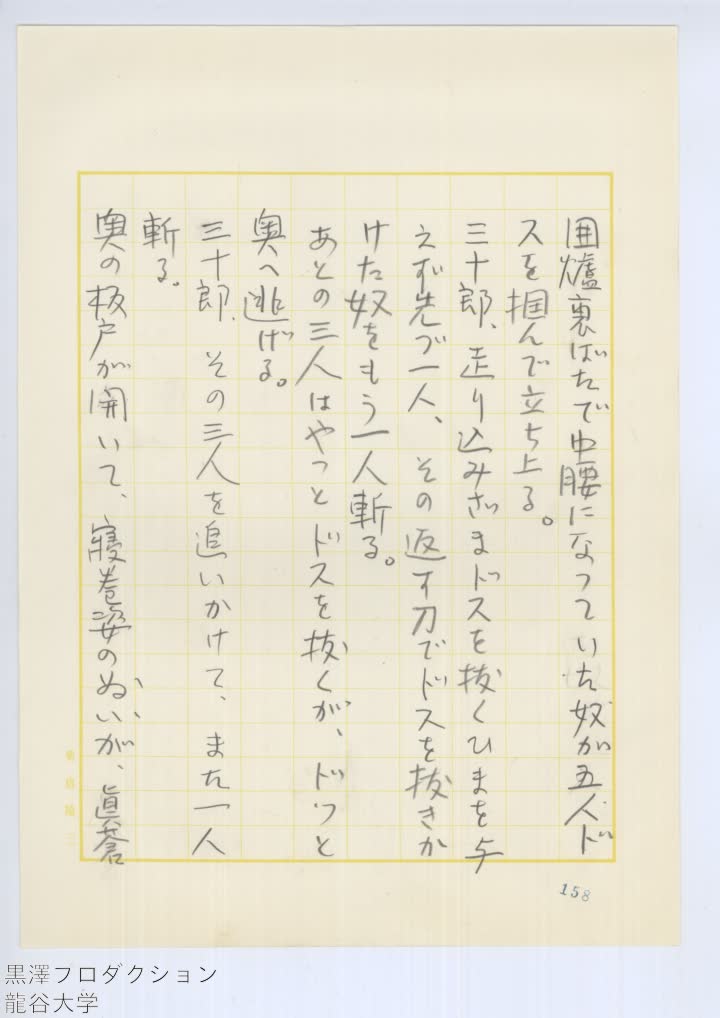 囲爐裏ばたで中腰になっていた奴が五人ド
スを掴んで立ち上る。
三十郎、走り込みざまドスを抜くひまを与
えず先づ一人、その返す刀でドスを抜きか
けた奴をもう一人斬る。
あとの三人はやっとドスを抜くが、ドッと
奥へ逃げる。
三十郎、その三人を追いかけて、また一人
斬る。
奥の板戸が開いて、寝巻姿のぬいが、眞蒼
158
黒澤プロダクション
龍谷大学